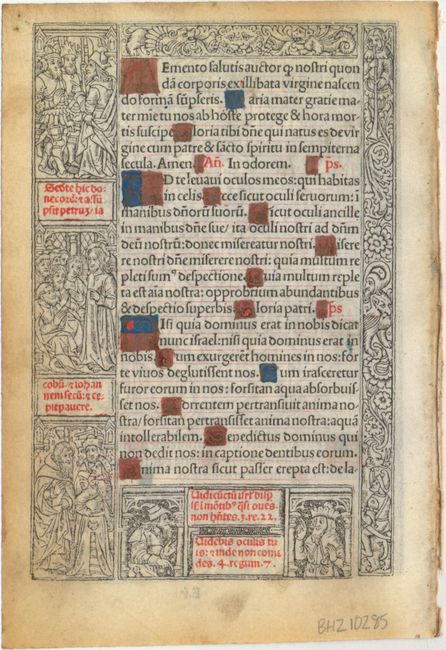 Emento salutis auctor ꝙ nostri quon
dā corporis ex illibata virgine nascen
do formā sūpseris. Maria mater gratie ma-
ter mie tu nos ab hoste protege & hora mor-
tis suscipe. Gloria tibi dn̄e qui natus es de vir
gine cum patre & sācto spiritu in sempiterna
secula. Amen. Añ. In odorem. ps.
AD te leuaui oculos meos: qui habitas
in celis. Ecce sicut oculi seruorum: i
manibus dn̄orū suorū. Sicut oculi ancille
in manibus dn̄e sue/ ita oculi nostri ad dn̄m
deū nostrū: donec misereatur nostri. Misere
re nostri dn̄e miserere nostri: quia multum re
pleti sumꝰ despectione. Quia multum reple
ta est aīa nostra: opprobrium abundantibus
& despectio superbis. Gloria patri. ps
Isi quia dominus erat in nobis dicat
nunc israel: nisi quia dominus erat in
nobis. Cum exurgerent homines in nos: for
te viuos deglutissent nos. Cum irasceretur
furor eorum in nos: forsitan aqua absorbuis-
set nos. Torrentem pertransiuit anima no-
stra/ forsitan pertransisset anima nostra: aquā
intollerabilem. Benedictus dominus qui
non dedit nos: in captione dentibus eorum.
Anima nostra sicut passer erepta est: de la-
Sedete hic do-
nec orē: & assū
psit petrū, ia
cobū: & iohan
nem secū: & ce-
pit pauere.
Uidi cūctū isrl' disp
si mōtibꝰ q̄si oues
non hn̄tes. 3. re. 22.
Uidebis oculis tu
is: & inde non come
des. 4. regum. 7.
BHZ10285